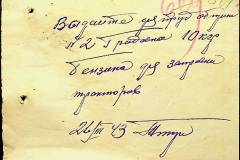 Выдайте для труд
№ 2 Г района 10 кгр
бензина для заправки
тракторов
26/III 43